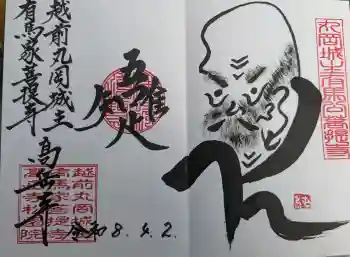 越前丸岡城主
有馬家菩提寺
吾唯足知
高岳寺
令和8.4.2.
丸岡城主有馬公菩提寺
越前丸岡城
有馬家菩提寺